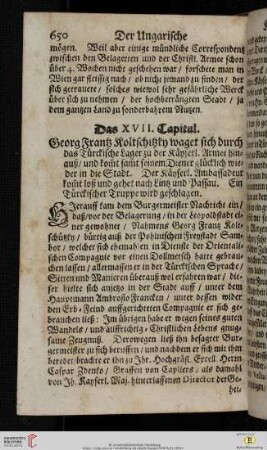 650 Der Ungarische
mögen. Weil aber einige mündliche Correspondentz
zwischen den Belägerten und der Christl. Armee schon
über 4. Wochen nicht geschehen war / forschete man in
Wien gar fleissig nach / ob nicht jemand zu finden / der
sich getrauete / solches wiewol sehr gefährliche Werck
über sich zu nehmen / der hochbetrangten Stadt / ja
dem gantzen Land zu sonderbahrem Nutzen.
Das XVII. Capitul.
Georg Frantz Koltschitzky waget sich durch
das Türckische Läger zu der Käyserl. Armee hin-
auß / und komt samt seinem Diener glücklich wie-
der in die Stadt. Der Käyserl. Ambassadeur
komt loß und gehet nach Lintz und Passau. Ein
Türckischer Truppe wird geschlagen.
Hierauff kam dem Burgermeister Nachricht ein /
daß / vor der Belägerung / in der Leopoldstadt ei-
ner gewohnet / Nahmens Georg Frantz Kolt-
schützky / bürtig auß der Pohlnischen Freystadt Sam-
bor / welcher sich ehemals in Dienste der Orientali-
schen Compagnie vor einen Dollmetsch hatte gebrau-
chen lassen / allermassen er in der Türckischen Sprache /
Sitten und Manieren überauß wol erfahren war / die-
ser hielte sich anjetzo in der Stadt auff / unter dem
Hauptmann Ambrosio Francken / unter dessen wider
den Erb-Feind auffgerichteten Compagnie er sich ge-
brauchen ließ: Im übrigen habe er wegen seines guten
Wandels / und auffrichtig-Christlichen Lebens gnug-
same Zeugnuß. Derowegen ließ ihn besagter Bur-
germeister zu sich beruffen / und nachdem er sich mit ihm
beredet / brachte er ihn zu Ihr. Hochgräfl. Excell. Herrn
Caspar Zdenko / Graffen von Capliers / als damahl
von Ih. Kayserl. Maj. hinterlassenen Director der Ge-
hei-